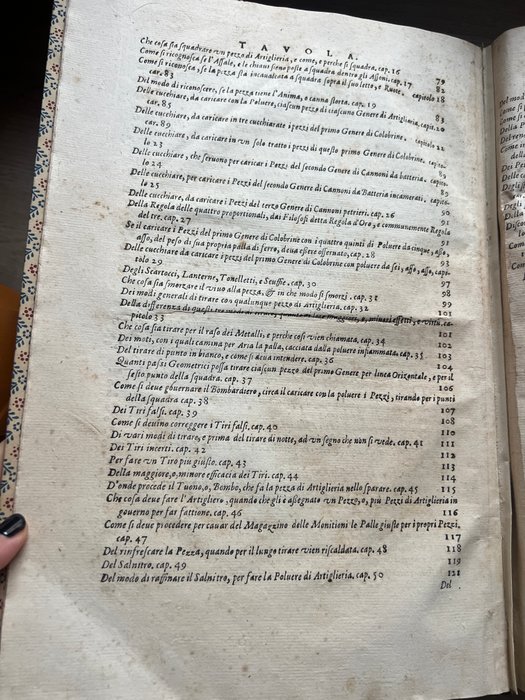 TAVOLA.
Che cosa sia squadrare vn pezzo di Artiglieria, e come, e perche si squadra. cap. 16 79
Come si ricognosca se l'Assale, e le chiaui sieno poste a squadra dentro gli Assoni. cap. 17 82
Come si riconosca, se la pezza sia incaualcata a squadra sopra il suo letto, e Ruote. capitolo 18
car. 83
Del modo di riconoscere, se la pezza tiene l'Anima, o canna storta. cap. 19 83
Delle cucchiare, da caricare con la Poluere, ciascun pezzo di ciascuno Genere di Artiglieria, capit. 20
car. 85
Delle cucchiare, da caricare in tre cucchiarate i pezzi del primo Genere di Colobrine. capitolo 22
car. 89
Delle cucchiare, da caricare in vn solo tratto i pezzi di questo primo Genere di Colobrine, capito-
lo 23 89
Delle cucchiare, che seruono per caricare i Pezzi del secondo Genere di Cannoni da batteria. capito-
lo 24 89
Delle cucchiare, per caricare i Pezzi del secondo Genere di Cannoni da Batteria incamerati, capito-
lo 25 90
Delle cucchiare, da caricare i Pezzi del terzo Genere di Cannoni petrieri. cap. 26 90
Della Regola delle quattro proportionali, dai Filosofi detta Regola d'Oro, e communemente Regola
del tre. cap. 27 91
Se il caricare i Pezzi del primo Genere di Colobrine con i quattro quinti di Poluere da cinque, asso,
asso, del peso di sua propria palla di ferro, dee essere osseruato, cap. 28 93
Delle cucchiare da caricare i pezzi del primo Genere di Colobrine con poluere da sei, asso, asso, capi-
tolo 29 97
Degli Scartocci, Lanterne, Tonelletti, e Stuffie. cap. 30 98
Che cosa sia smorzare il viuo alla pezza, & in che modo si smorzi. cap. 31 99
Dei modi generali di tirare con qualunque pezzo di Artiglieria. cap. 32 101
Della differenza di questi tre modi di tirare, e minori effetti, e virtù. ca-
pitolo 33 101
Che cosa sia tirare per il raso de Metalli, e perche così vien chiamata, cap. 34 102
Dei moti, con i quali camina per Aria la palla, cacciata dalla poluere infiammata, cap. 35 103
Del tirare di punto in bianco, e come si deua intendere. cap. 36 104
Quanti passi Geometrici possa tirare ciascun pezo del primo Genere per linea Orizontale, e per il
sesto punto della squadra. cap. 37 106
Come si deue gouernare il Bombardiero, circa il caricare con la poluere i Pezzi, tirando per i punti
della squadra cap. 38 107
Dei Tiri falsi. cap. 39 108
Come si deuino correggere i Tiri falsi. cap. 40 110
Di vari modi di tirare, e prima del tirare di notte, ad vn segno che non si vede, cap. 41 111
Dei Tiri incerti. cap. 42 112
Per fare vn Tiro più giusto. cap. 43 113
Della maggiore, o, minore efficacia dei Tiri. cap. 44 114
D'onde procede il Tuono, o, Bombo, che fa la pezza di Artiglieria nello sparare. cap. 45 115
Che cosa deue fare l'Artigliero, quando che gli è assegnato vn Pezzo, o, più Pezzi di Artiglieria in
gouerno per far fattione. cap. 46 116
Come si deue procedere per cauar del Magazzino delle Monitioni le Palle giuste per i propri Pezzi,
cap. 47 117
Del rinfrescare la Pezza, quando per il lungo tirare vien riscaldata. cap. 48 118
Del Salnitro. cap. 49 119
Del modo di raffinare il Salnitro, per fare la Poluere di Artiglieria. cap. 50 121
Del